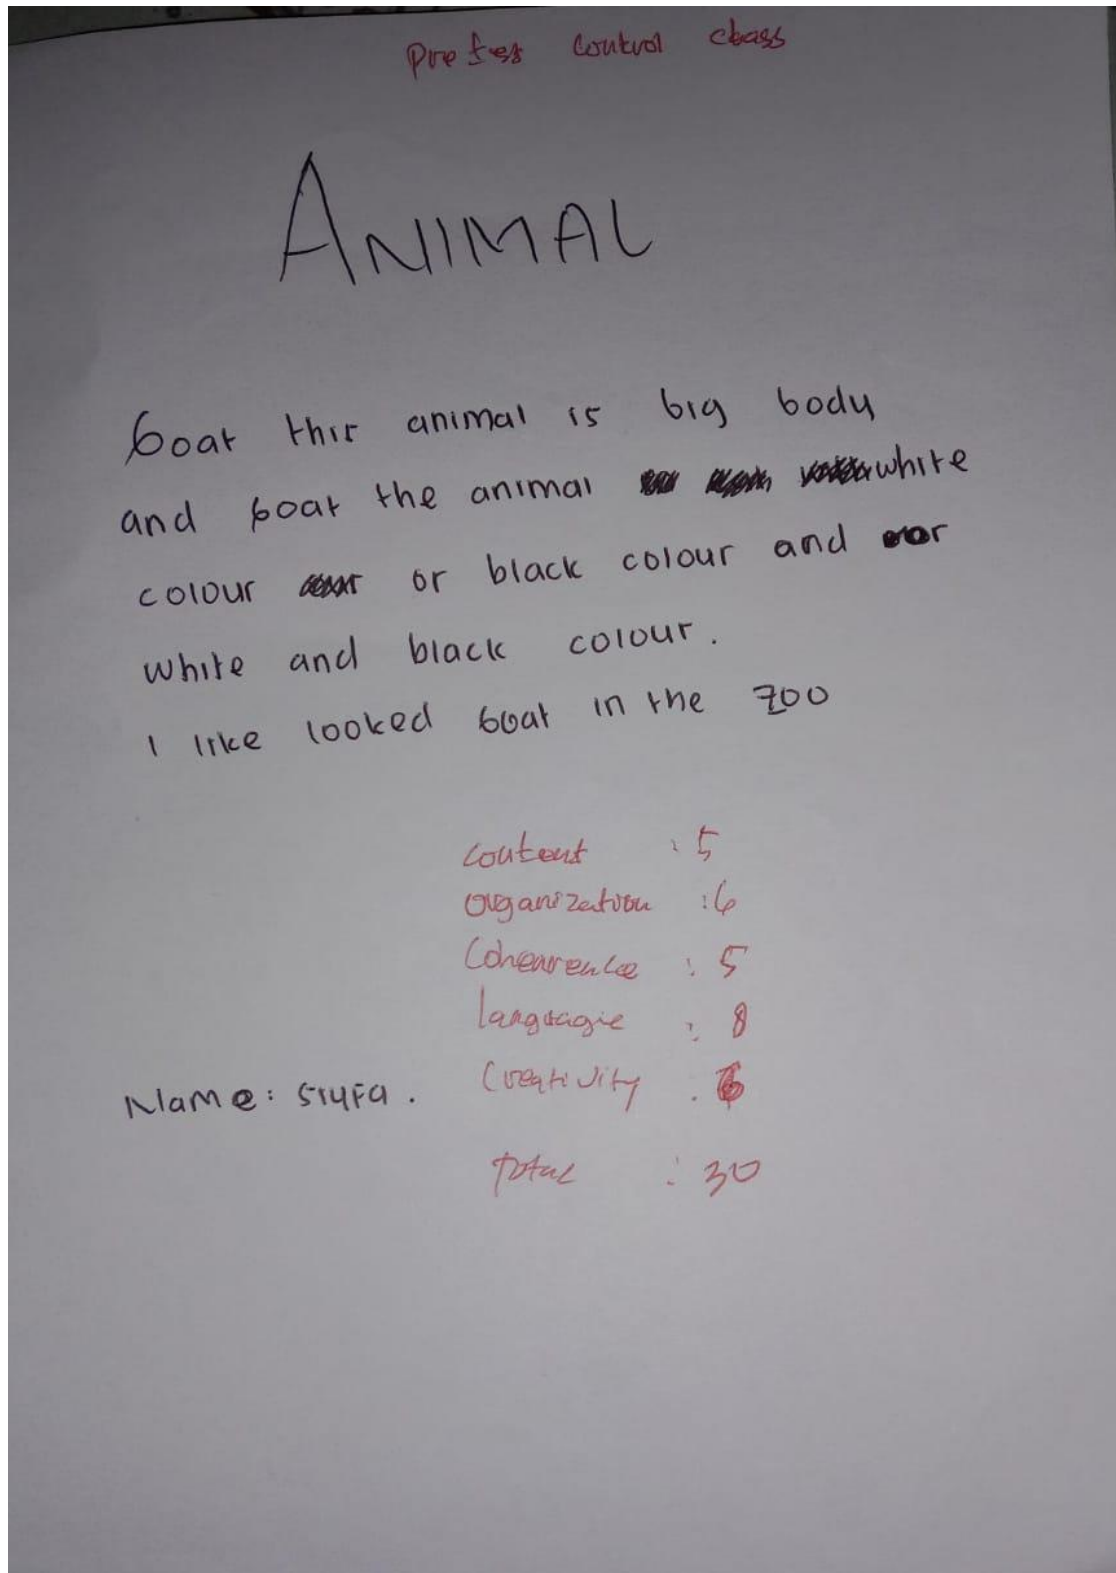 Pretes Control class
ANIMAL
Goat this animal is big body
and goat the animal white
colour or black colour and or
white and black colour.
I like looked Goat in the zoo
content : 5
organization : 6
Cohearence : 5
languagie : 8
Creativity : 6
Name: SIYFA.
Total : 30